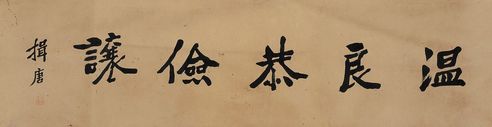 温良恭儉讓
揖唐